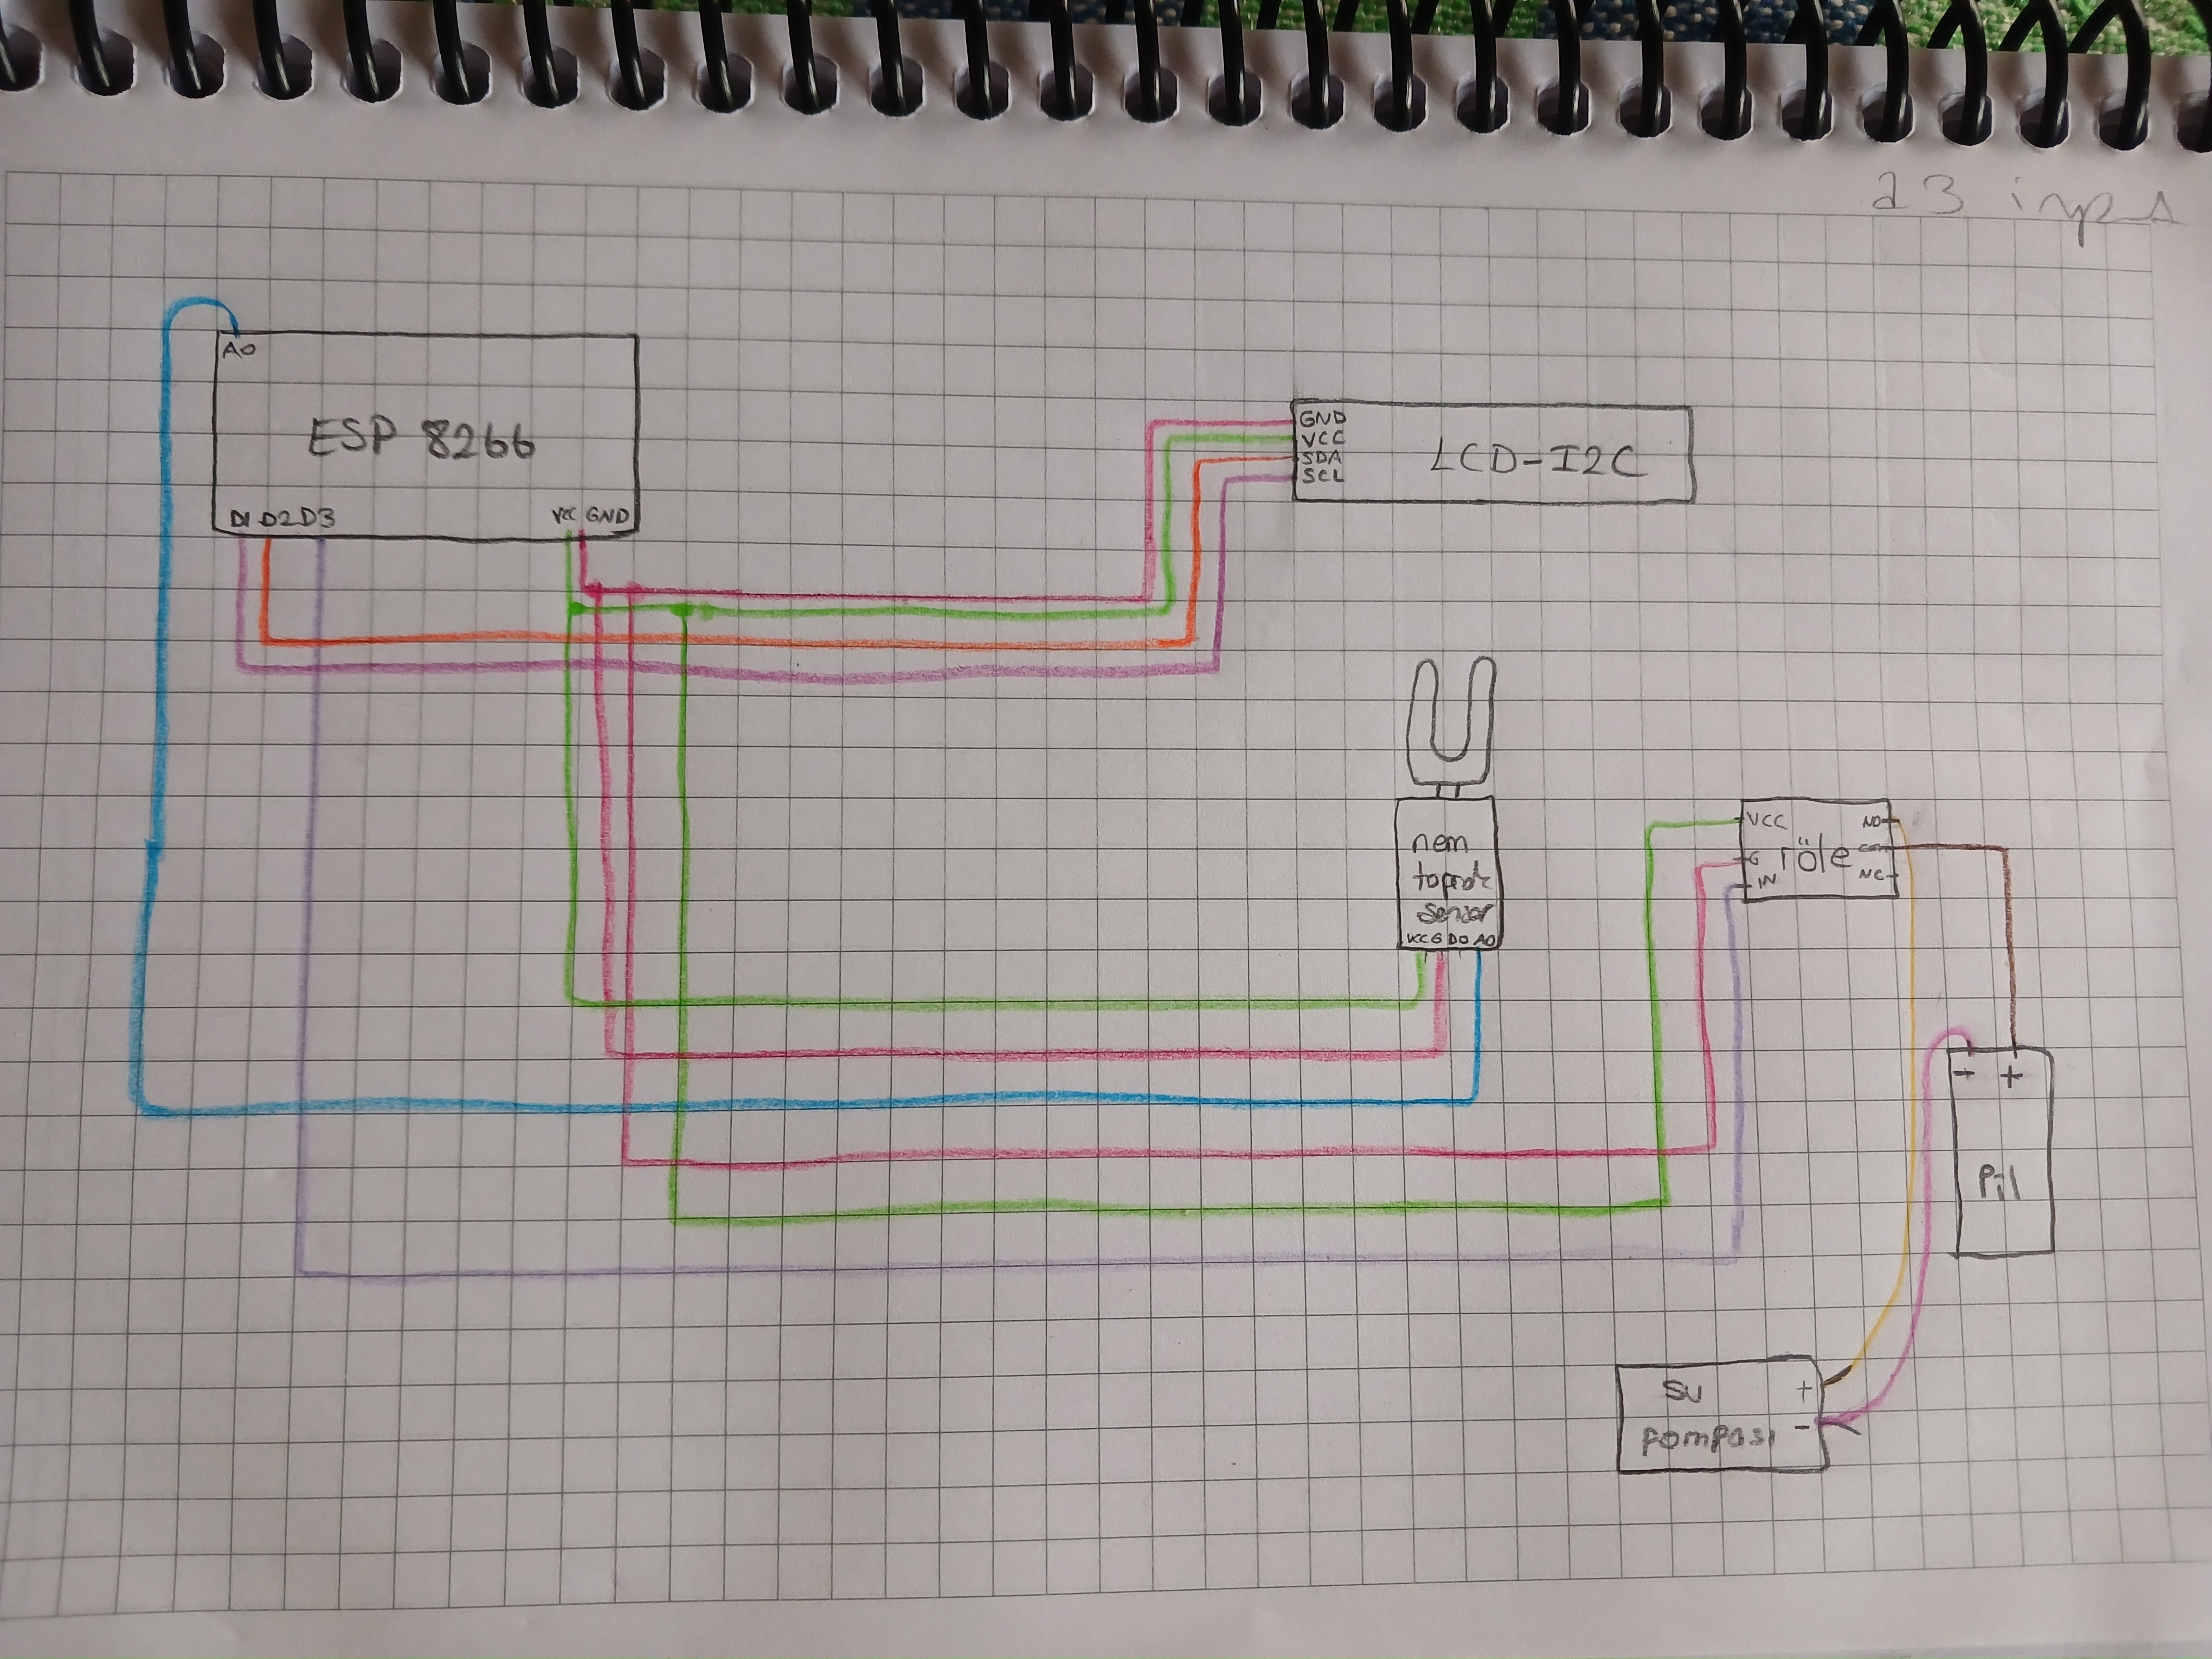 A0
ESP 8266
D1 D2 D3
VCC GND
GND
VCC
SDA
SCL
LCD-I2C
nem
toprak
sensor
VCC G D0 A0
VCC
G
IN
röle
NO
com
NC
- +
Pil
su
pompası
+
-